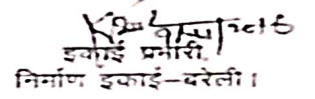 इकाई प्रभारी,
निर्माण इकाई-बरेली।